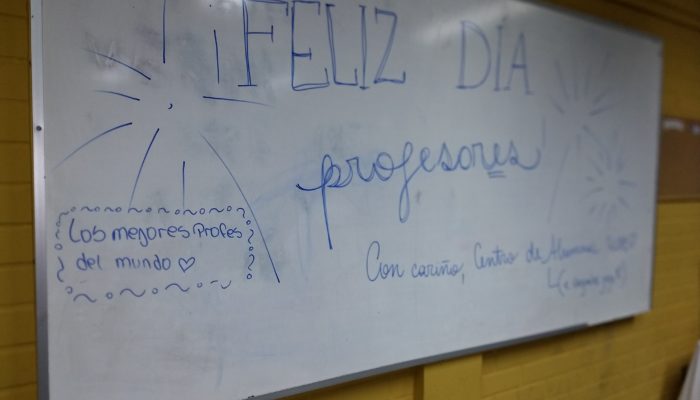 ¡FELIZ DÍA
profesores
Los mejores Profes
del mundo ♡
Con cariño, Centro de Alumnos